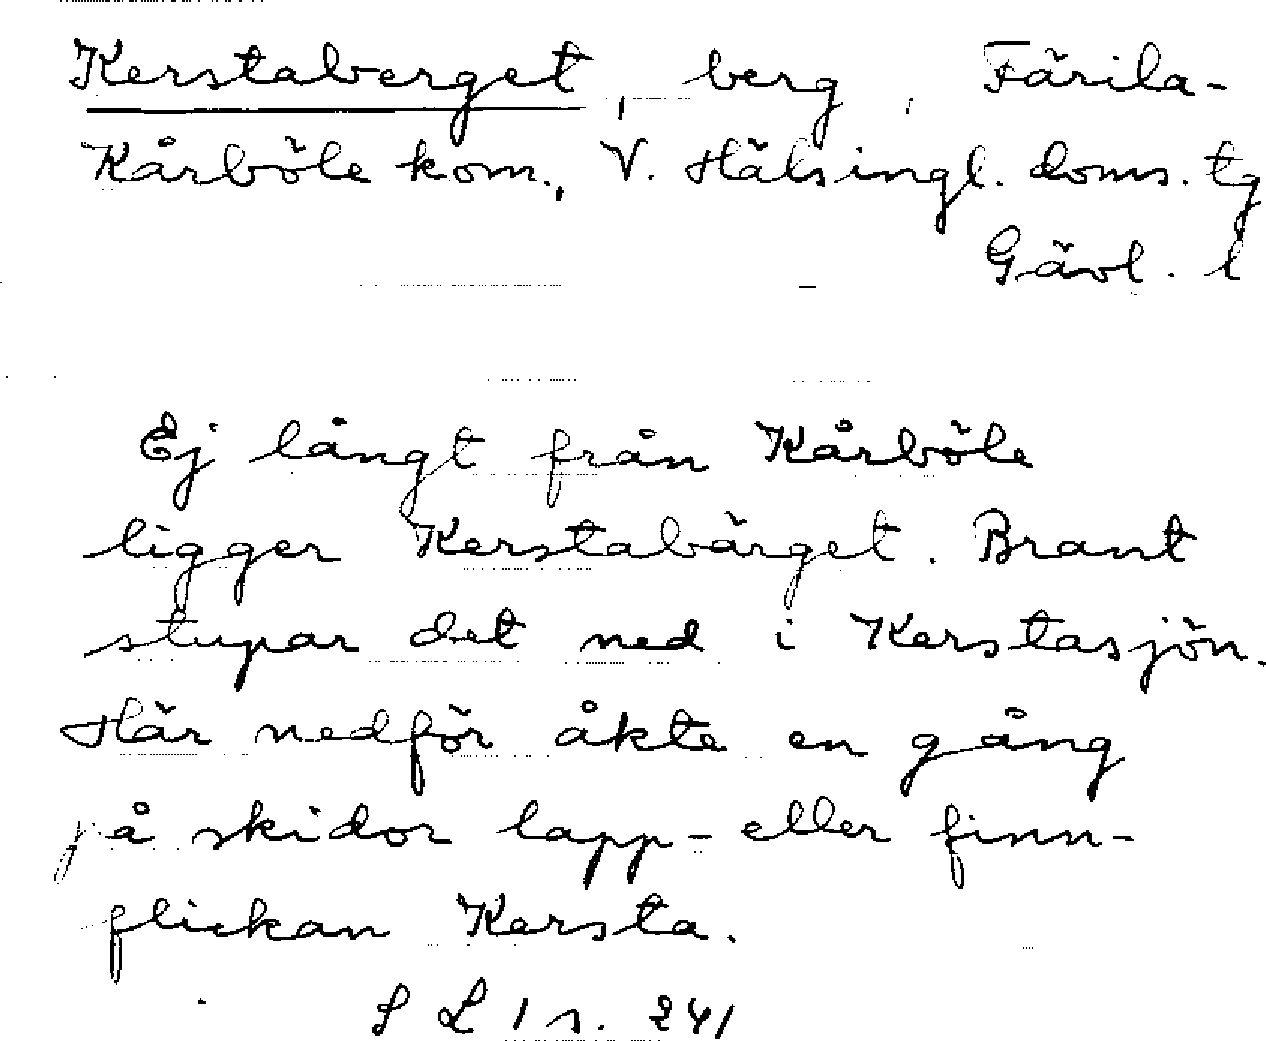 Kerstaberget, berg, Färila-
Kårböle kom., V. Hälsingl. doms. tg
Gävl. l
Ej långt från Kårböle
ligger Kerstabärget. Brant
stupar det ned i Kerstasjön.
Här nedför åkte en gång
på skidor lapp- eller finn-
flickan Kersta.
S L 1 s. 241